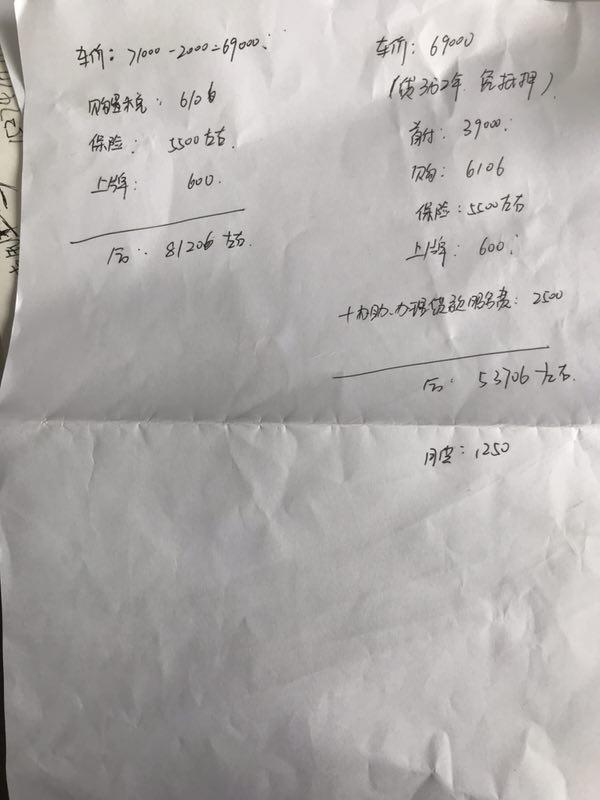 车价：71000-2000=69000
购置税：6106
保险：5500左右.
上牌：600.
后：81206左右.
车价：69000
(贷3万2年 免抵押)
首付：39000
购：6106
保险：5500左右
上牌：600
+办理贷款服务费：2500
后：53706左右.
月供：1250